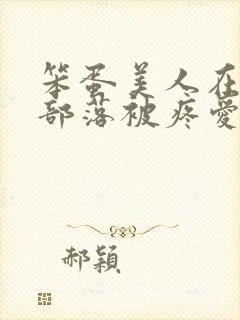 笨蛋美人在
部落被疼愛
郝穎